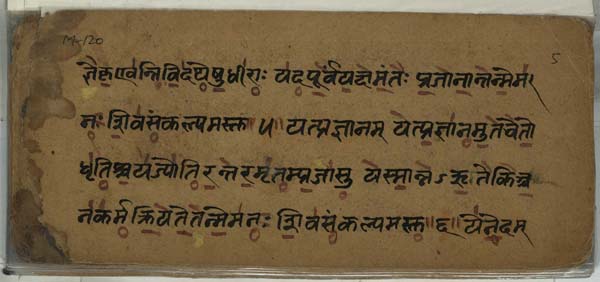 5
ज्ञेकृण्वन्तिविदथेषुधीराः यदपूर्वंयक्षमंतः प्रजानान्तन्मेम
नः शिवसंकल्पमस्तु ॥ ५ ॥ यत्प्रज्ञानम् यत्प्रज्ञानमुतचेतो
धृतिश्चयज्योतिरन्तरमृतम्प्रजासु यस्मान्नेऽऋतेकिञ्च
नकर्मक्रियतेतन्मेमनः शिवसंकल्पमस्तु ॥ ६ ॥ येनेदम्